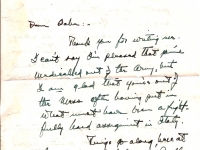 Dear Baker:-
Thank you for writing me.
I can't say I'm pleased that you're
medicalled out of the Army, but
I am glad that you're out of
the mess after having put in
what must have been a fright-
fully hard assignment in Italy.
Things go along here at